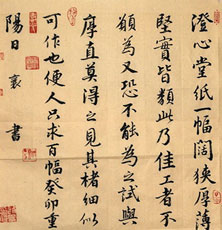 澄心堂纸一幅阔狭厚薄
坚实皆类此乃佳工者不
愿为又恐不能为之试与
厚直莫得之见其楮细似
可作也便人只求百幅癸卯重
阳日襄书